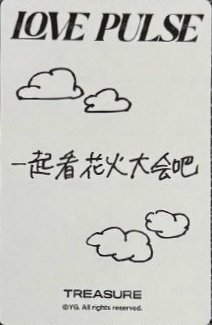 LOVE PULSE
一起看花火大会吧
TREASURE
©YG. All rights reserved.